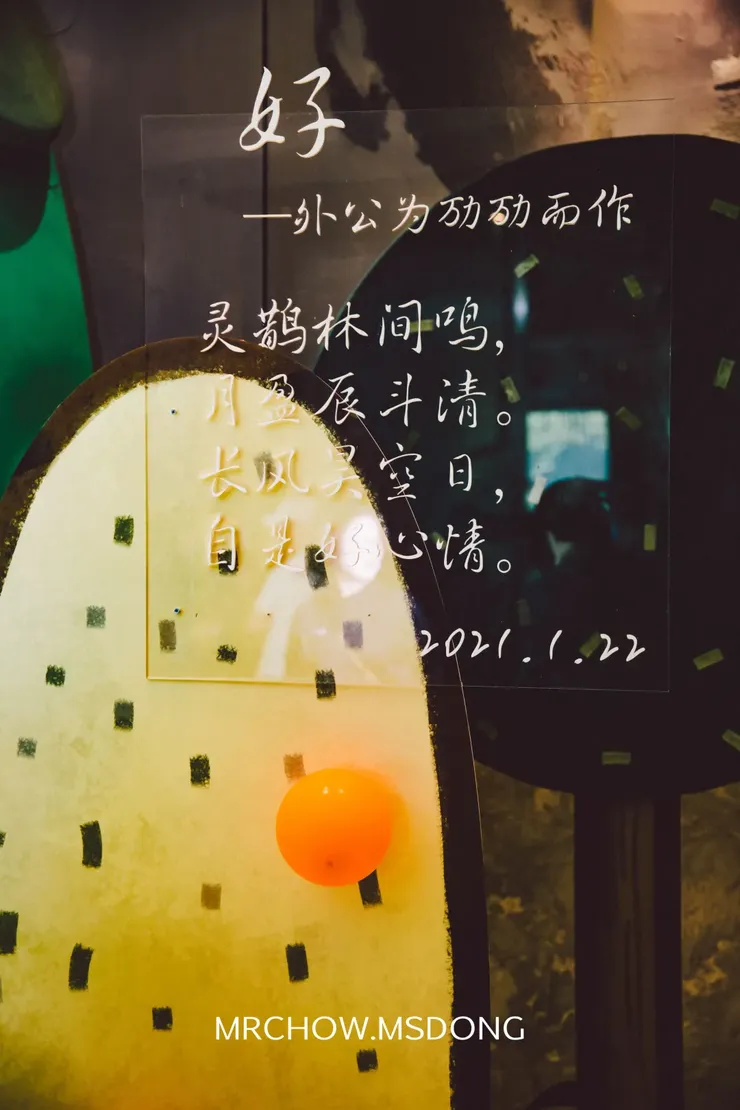 好
—外公为劢劢而作
灵鹊林间鸣，
月盈辰斗清。
长风昊空日，
自是好心情。
2021.1.22
MRCHOW.MSDONG